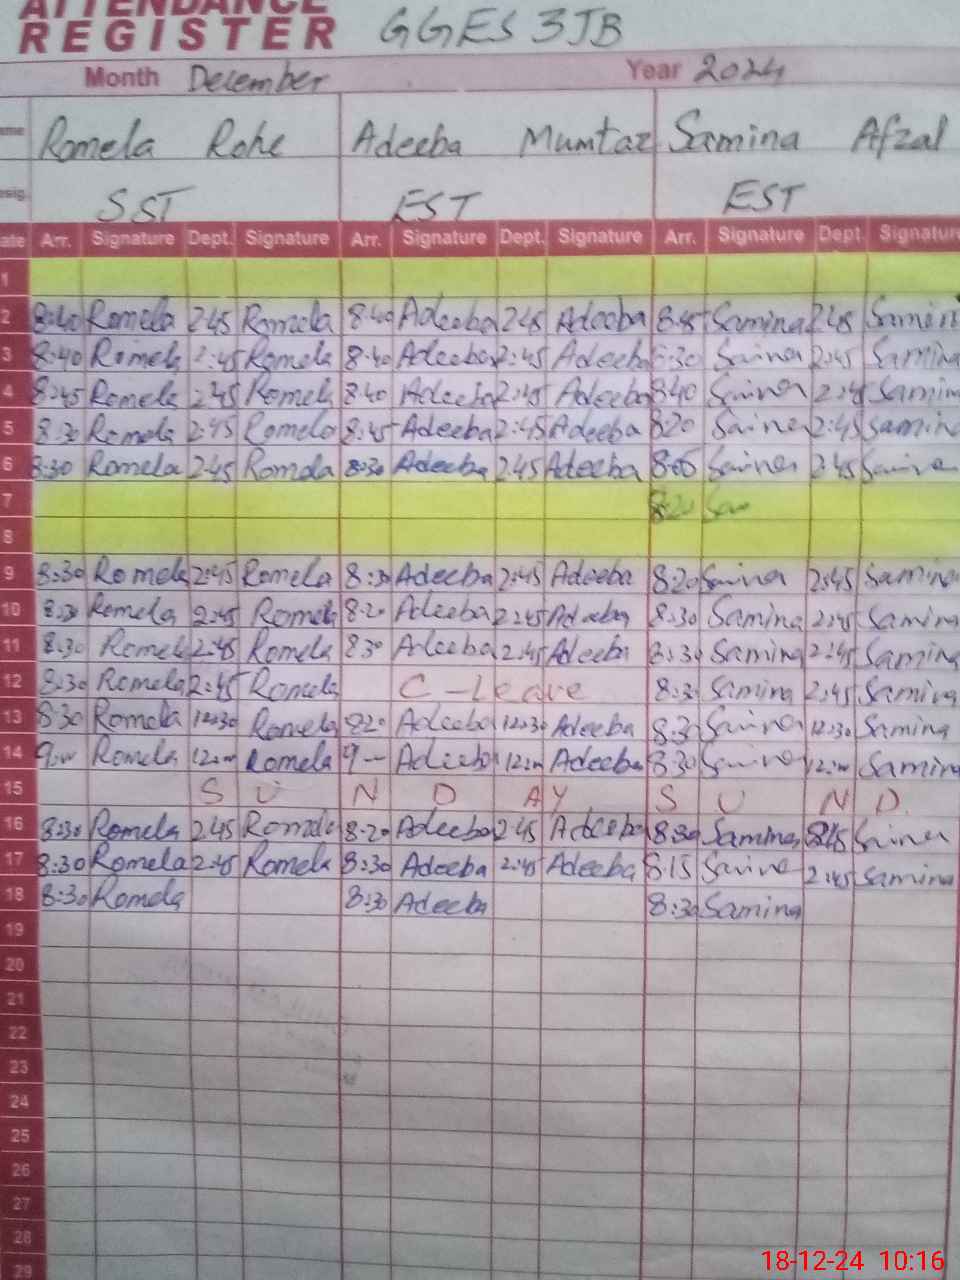 ATTENDANCE
REGISTER GGES 3JB
Month December Year 2024
ame Romela Rohe Adeeba Mumtaz Samina Afzal
esig. SST EST EST
ate Arr. Signature Dept. Signature Arr. Signature Dept. Signature Arr. Signature Dept. Signature
1
2 8:40 Romela 2:45 Romela 8:40 Adeeba 2:45 Adeeba 8:45 Samina 2:45 Samin
3 8:40 Romela 2:45 Romela 8:40 Adeeba 2:45 Adeeba 8:30 Samina 2:45 Samina
4 8:45 Romela 2:45 Romela 8:40 Adeeba 2:45 Adeeba 8:40 Samina 2:45 Samin
5 8:30 Romela 2:45 Romela 8:45 Adeeba 2:45 Adeeba 8:20 Samina 2:45 Samina
6 8:30 Romela 2:45 Romela 8:30 Adeeba 2:45 Adeeba Samina 2:45 Samina
7 8:20 Sam
8
9 8:30 Romela 2:45 Romela 8:30 Adeeba 2:45 Adeeba 8:20 Samina 2:45 Samina
10 8:30 Romela 2:45 Romela 8:20 Adeeba 2:45 Adeeba 8:30 Samina 2:45 Samina
11 8:30 Romela 2:45 Romela 8:30 Adeeba 2:45 Adeeba 8:30 Samina 2:45 Samina
12 8:30 Romela 2:45 Romela C-Leave 8:30 Samina 2:45 Samina
13 8:30 Romela 12:30 Romela 8:20 Adeeba 12:30 Adeeba 8:30 Samina 12:30 Samina
14 Romela Romela 9- Adeeba Adeeba 8:30 Samina Samina
15 S U N D AY S U N D
16 8:30 Romela 2:45 Romela 8:20 Adeeba 2:45 Adeeba 8:30 Samina Samina
17 8:30 Romela 2:45 Romela 8:30 Adeeba 2:45 Adeeba 8:15 Samina 2:45 Samina
18 8:30 Romela 8:30 Adeeba 8:30 Samina
19
20
21
22
23
24
25
26
27
28
29
18-12-24 10:16